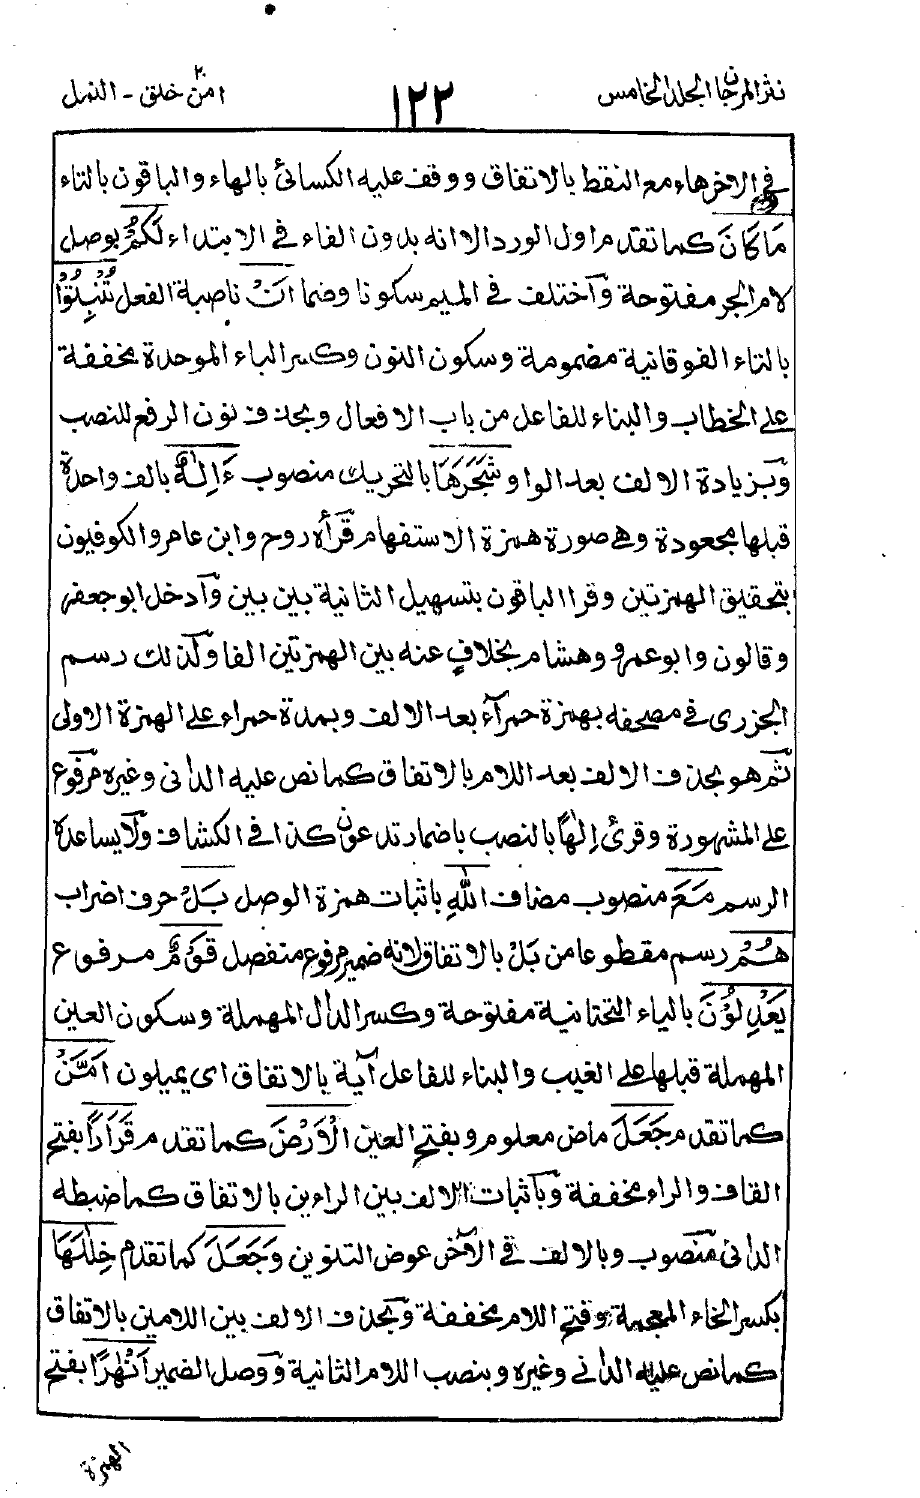 نثر المرجان المجلد الخامس
١٢٢
امن خلق ٢٠ - النمل
في الاخرهاء مع النقط بالاتفاق ووقف عليه الكسائئ بالهاء والباقون بالتاء
مَا كَانَ كما تقدم اول الورد الا انه بدون الفاء في الابتداء لَكُمُْ بوصل
لام الجر مفتوحة وآختلف في الميم سكونا وضما اَنْ ناصبة الفعل تُنْبِتُوْا
بالتاء الفوقانية مضمومة وسكون النون وكسر الباء الموحدة مخففة
على الخطاب والبناء للفاعل من باب الافعال وبحذف نون الرفع للنصب
وَبزيادة الالف بعد الواو شَجَرَهَا بالتحريك منصوب ءَاِلٰهٌ بالف واحدة
قبلها مجعودة وهي صورة همزة الاستفهام قرأه روح وابن عامر والكوفيون
بتحقيق الهمزتين وقرا الباقون بتسهيل الثانية بين بين وآدخل ابو جعفر
وقالون وابو عمرو وهشام بخلافٍ عنه بين الهمزتين الفا وكذلك رسم
الجزرى في مصحفه بهمزة حمرآء بعد الالف وبمدة حمراء على الهمزة الاولى
ثم هو بحذف الالف بعد اللام بالاتفاق كما نص عليه الدانى وغيره مرفوع
على المشهورة وقرئ اِلٰهًا بالنصب باضمار تدعون كذا في الكشاف ولا يساعده
الرسم مَعَ منصوب مضاف اللّٰهِ باثبات همزة الوصل بَلْ حرف اضراب
هُمُْ رسم مقطوعا من بَلْ بالاتفاق لانه ضمير مرفوع منفصل قَوْمٌ مرفوع
يَعْدِلُوْنَ بالياء التحتانية مفتوحة وكسر الدال المهملة وسكون العين
المهملة قبلها على الغيب والبناء للفاعل آية بالاتفاق اى يميلون اَمَّنْ
كما تقدم جَعَلَ ماض معلوم وبفتح العين الْاَرْضَ كما تقدم قَرَارًا بفتح
القاف والراء مخففة وبآثبات الالف بين الراءين بالاتفاق كما ضبطه
الدانى منصوب وبالالف في الآخر عوض التنوين وَجَعَلَ كما تقدم خِلٰلَهَا
بكسر الخاء المعجمة وفتح اللام مخففة وبحذف الالف بين اللامين بالاتفاق
كما نص عليه الدانى وغيره وبنصب اللام الثانية ووصل الضمير اَنْهٰرًا بفتح
الهمزة